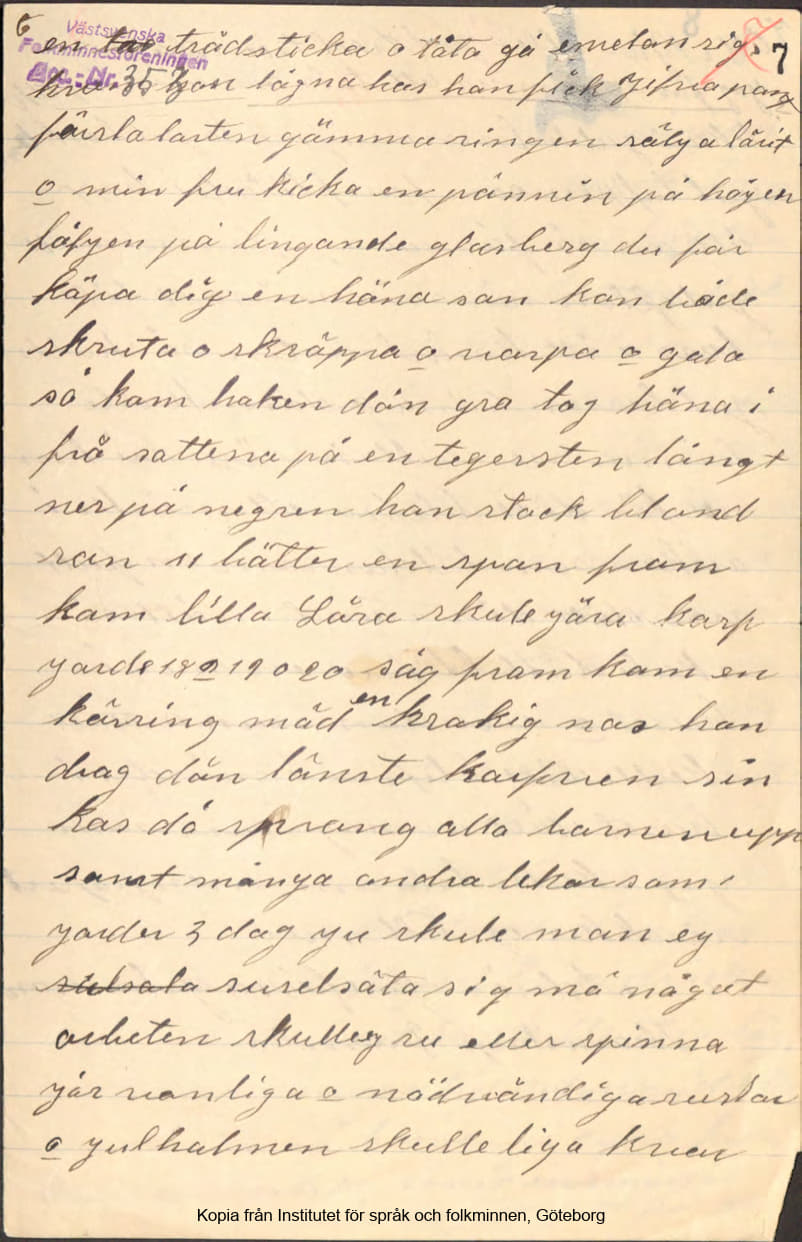 6
Västsvenska
Folkminnesföreningen
Acc.-Nr. 353
7
en trädsticka o låta gå emelan sig
hos han fick Jifva pant
färsta lasten gämma ringen sälya lärft
o min fru kicka en pännin på högen
fålyen på lingande glasberg du får
käpa dig en häna san kan både
skruta o skräppa o varpa o gala
så kam haken dän gra tog häna i
frå sattena på en tegersten långt
ner på negren han stack bland
ran 11 bätter en span fram
kam lilla Lära skule yära karp
yarde 18 o 19 o 20 såg fram kam en
kärring mäd en krakig nas han
drag dän länste karpven sin
kas då sprang alla barnen upp
samt många andra lekar sam
yarder 3 dag yu skule man ey
surelsäta sig må någat
arbeten skulle ey su eller spinna
yår vanliga o nädvändiga
o yulhalmen skulle liga kvar
Kopia från Institutet för språk och folkminnen, Göteborg